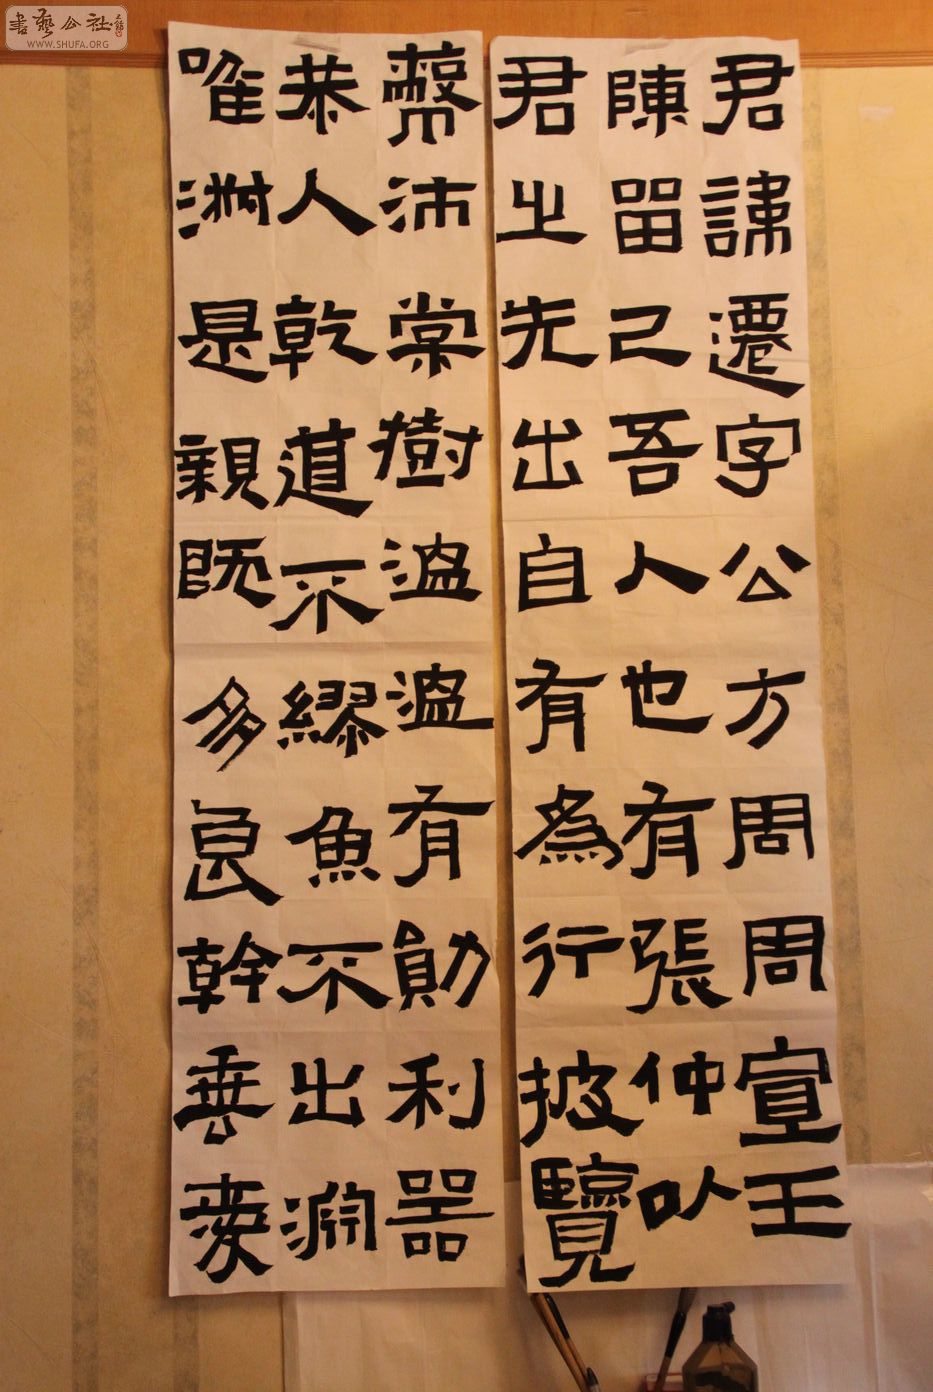 書藝公社
WWW.SHUFA.ORG
君諱遷字公方周周宣王
陳留己吾人也有張仲以
君之先出自有為行披覽
蔽沛棠樹溫溫有勛利器
恭人乾道不繆魚不出淵
唯淑是親既多良幹垂愛